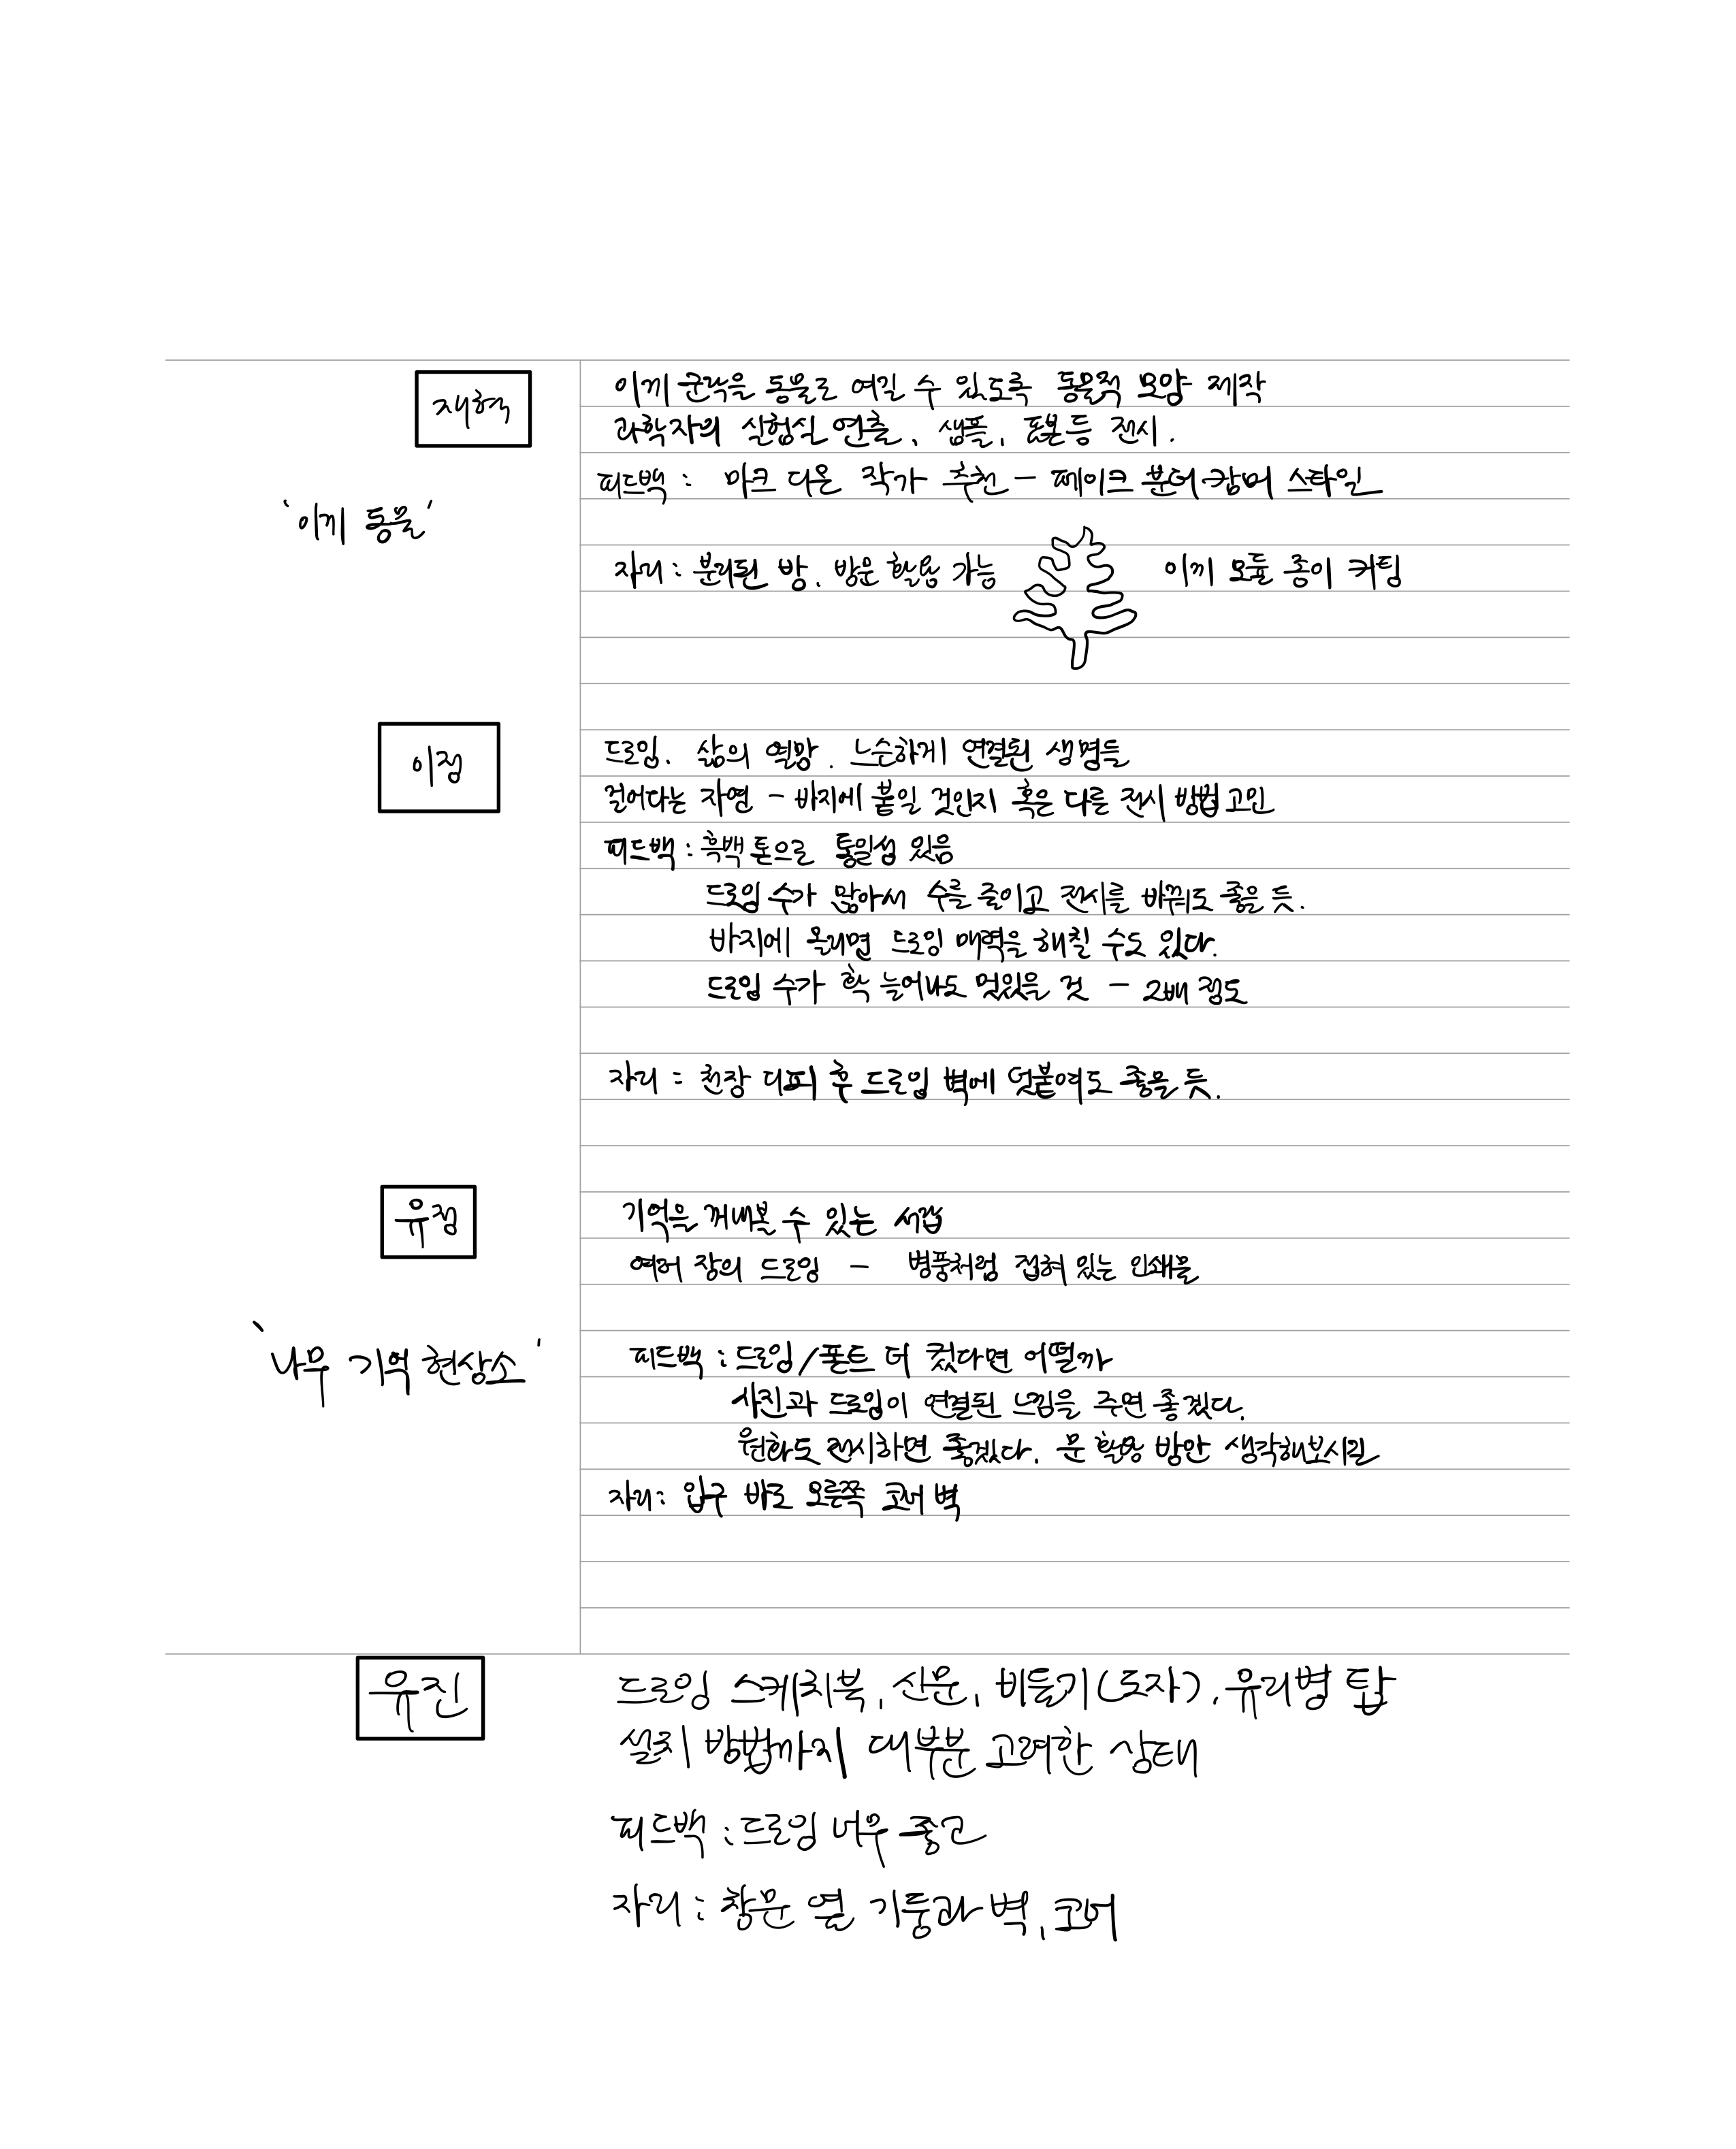 재혁
이끼 군락을 동물로 여길 수 있도록 동물적 모양 제작
과학자의 실험실 연출, 샘플, 표본 등 전시.
피드백 : 마크 디온 작가 추천 - 페이크 분더캄머 스타일
'이끼 동물'
자리 : 분리된 방. 방문 활용 가능
이끼 모듈 종이 커팅
이정
드로잉. 삶의 열망. 느슨하게 연결된 생명들
걸어다는 자연 - 바지에 붙일 것인지 혹은 다른 전시 방법 고민
피드백 : 흑백 톤으로 통일성 있음
드로잉 수가 많아서 수를 줄이고 전시를 바꿔도 좋을 듯.
바지에 올리면 드로잉 매력을 해칠 수도 있다.
드로잉 수가 확 늘어나도 멋있을 것 - 2배 정도
자리 : 천장 디피 후 드로잉 벽에 덧붙여도 좋을 듯.
유정
기억을 꺼내볼 수 있는 서랍
여러 장의 드로잉 - 병풍처럼 접혀 있는 인쇄물
'나무 기억 현상소'
피드백 : 드로잉/폰트 더 컸다면 어떨까
사진과 드로잉이 연결된 느낌을 주면 좋겠다.
원화도 전시하면 좋겠다. 문 활용 방안 생각해보시길
자리 : 입구 바로 오른쪽 코너 벽
유진
드로잉 스케치북, 신문, 비둘기(도자), 유리병 탑
설치 방법까지 대부분 고려한 상태
피드백 : 드로잉 너무 좋고
자리 : 창문 옆 기둥과 벽, 코너